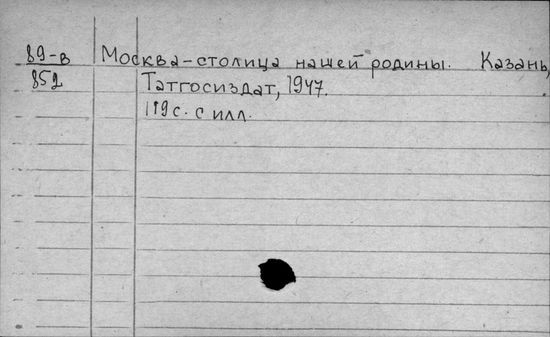 89-в Москва-столица нашей родины. Казань,
852 Татгосиздат, 1947.
119 с. с илл.